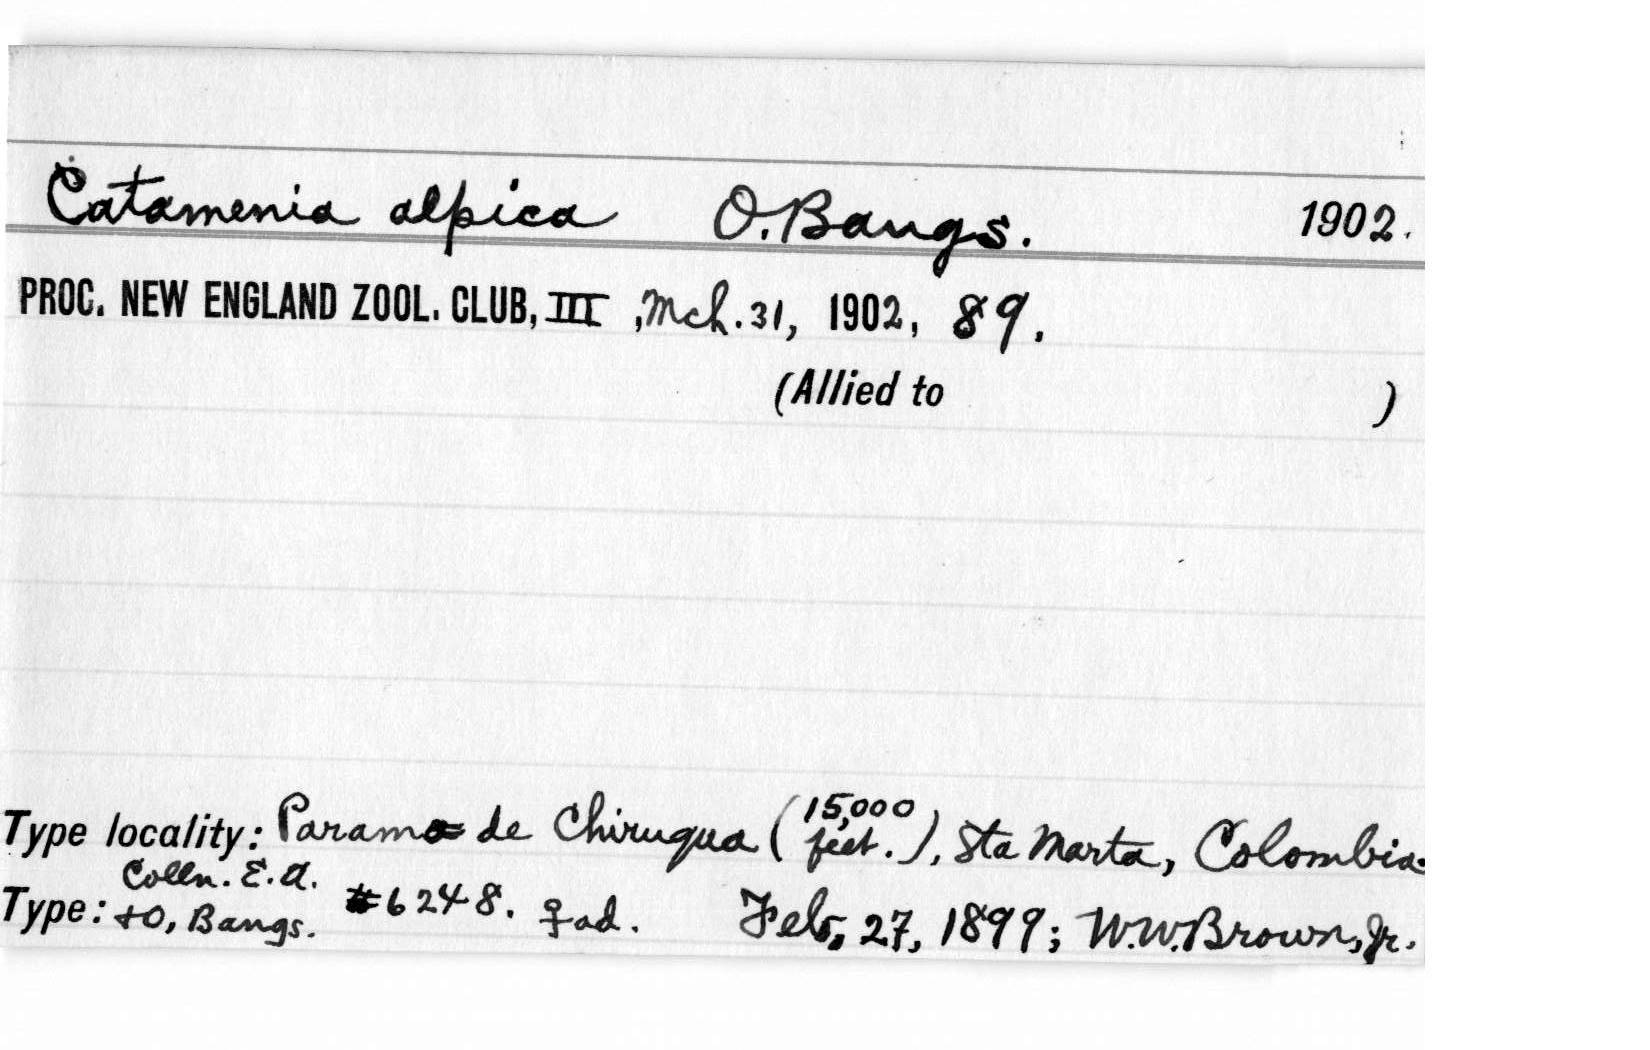 Catamenia alpica O. Bangs. 1902.
PROC. NEW ENGLAND ZOOL. CLUB, III, Mch. 31, 1902, 89.
(Allied to )
Type locality: Paramo de Chirugua (15,000 feet.), Sta Marta, Colombia
Type: Colln. E.A. +O, Bangs. #6248. ♀ ad. Feb, 27, 1899; W.W. Brown, Jr.